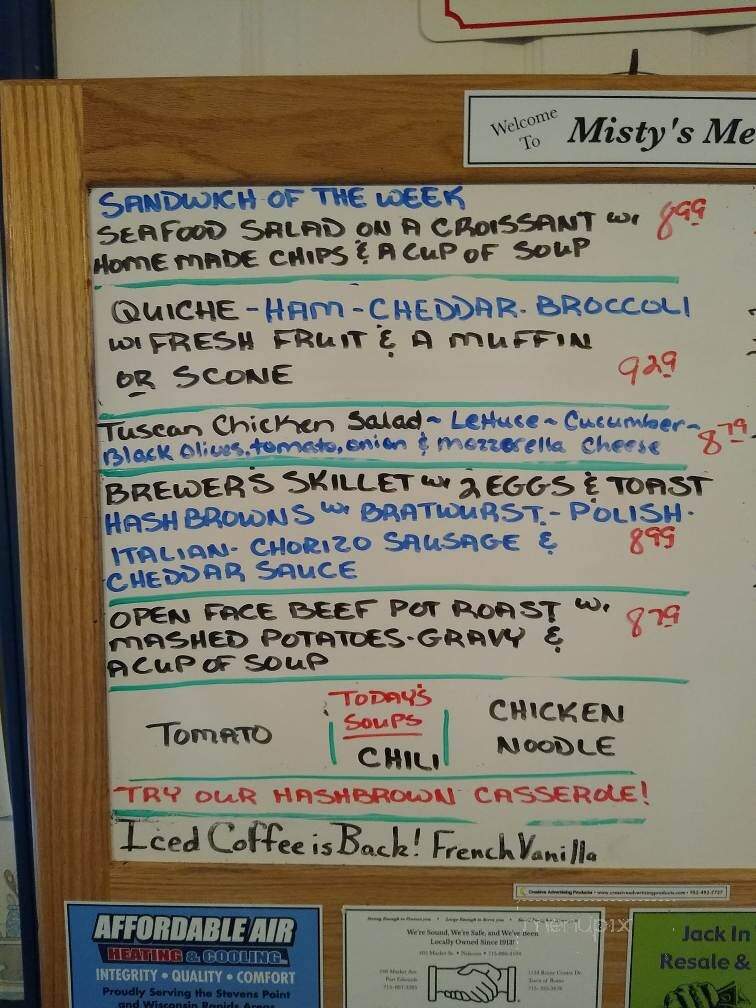 Welcome To Misty's Me
SANDWICH OF THE WEEK
SEAFOOD SALAD ON A CROISSANT W/ 8.99
HOMEMADE CHIPS & A CUP OF SOUP
QUICHE - HAM - CHEDDAR - BROCCOLI
W/ FRESH FRUIT & A MUFFIN
OR SCONE 9.29
Tuscan Chicken Salad ~ Lettuce ~ Cucumber ~ 8.79
Black Olives, tomato, onion & mozzerella Cheese
BREWER'S SKILLET W/ 2 EGGS & TOAST
HASHBROWNS W/ BRATWURST - POLISH -
ITALIAN - CHORIZO SAUSAGE & 8.99
CHEDDAR SAUCE
OPEN FACE BEEF POT ROAST W/ 8.79
MASHED POTATOES - GRAVY &
A CUP OF SOUP
TODAY'S
SOUPS
TOMATO
CHILI
CHICKEN
NOODLE
TRY OUR HASHBROWN CASSEROLE!
Iced Coffee is Back! French Vanilla
Creative Advertising Products • www.creativeadvertisingproducts.com
menupix
AFFORDABLE AIR
HEATING & COOLING
INTEGRITY • QUALITY • COMFORT
Proudly Serving the Stevens Point
and Wisconsin Rapids Areas
We're Sound, We're Safe, and We've Been
Locally Owned Since 1913!
Jack In
Resale &